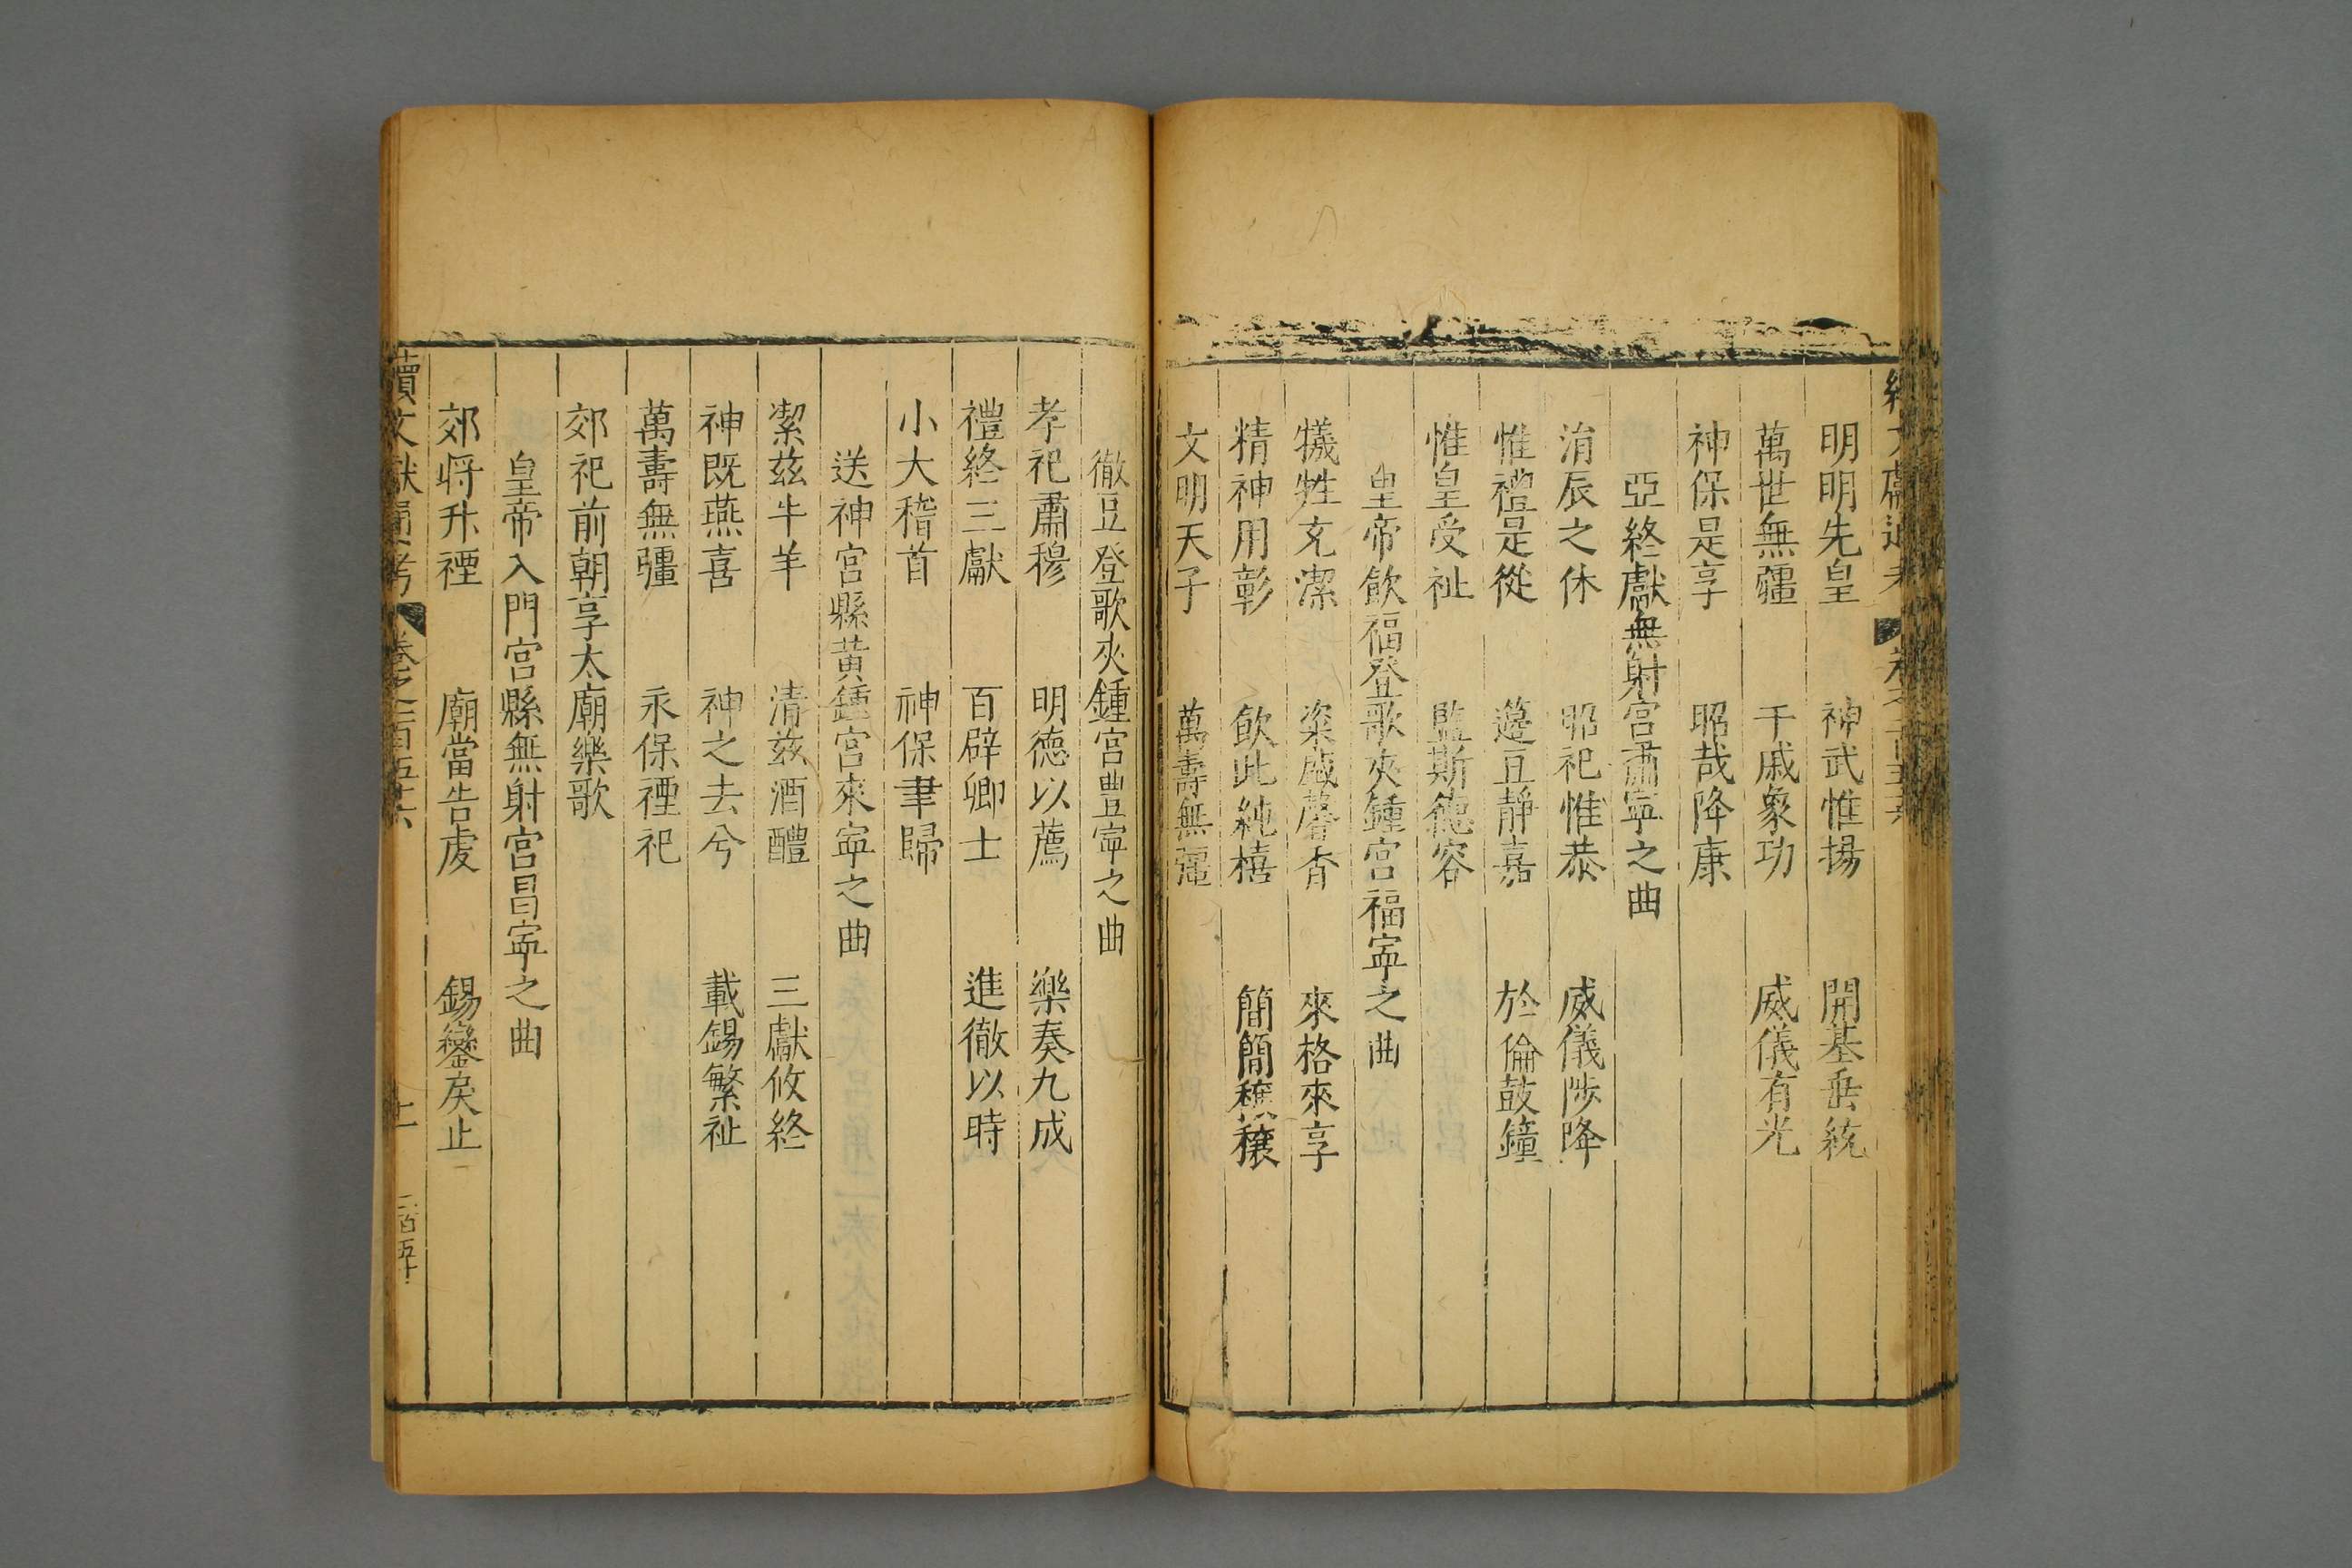 明明先皇 神武惟揚 開基垂統
萬世無疆 干戚象功 威儀有光
神保是享 昭哉降康
亞終獻無射宮肅寧之曲
涓辰之休 昭祀惟恭 威儀陟降
惟禮是從 籩豆靜嘉 於倫鼓鐘
惟皇受祉 監斯德容
皇帝飲福登歌夾鍾宮福寧之曲
犧牲充潔 粢盛馨香 來格來享
精神用彰 飲此純禧 簡簡穰穰
文明天子 萬壽無疆
徹豆登歌夾鍾宮豊寧之曲
孝祀肅穆 明德以薦 樂奏九成
禮終三獻 百辟卿士 進徹以時
小大稽首 神保聿歸
送神宮縣黃鍾宮來寧之曲
潔茲牛羊 清茲酒醴 三獻攸終
神既燕喜 神之去兮 載錫繁祉
萬壽無疆 永保禋祀
郊祀前朝享太廟樂歌
皇帝入門宮縣無射宮昌寧之曲
郊將升禋 廟當告虔 錫鑾戾止
續文獻通考 卷之一百五十六